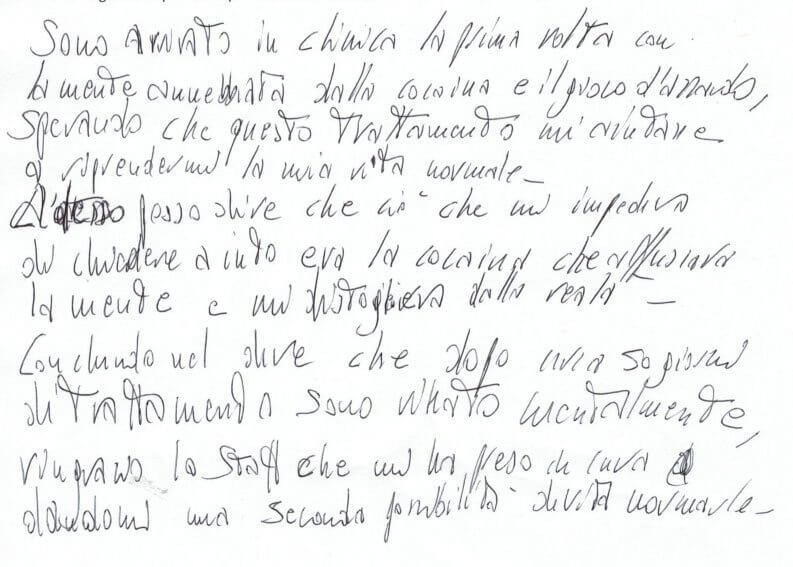 Sono arrivato in clinica la prima volta con
la mente annebbiata dalla cocaina e il gioco d'azzardo,
sperando che questo trattamento mi aiutare
a riprendermi la mia vita normale_
Adesso posso dire che ciò che mi impediva
di chiedere aiuto era la cocaina che
la mente e mi distoglieva dalla realtà_
Concludo nel dire che dopo 50 giorni
di trattamento sono mentalmente,
ringrazio lo staff che mi ha preso in cura
dandomi una seconda possibilità di vita normale_